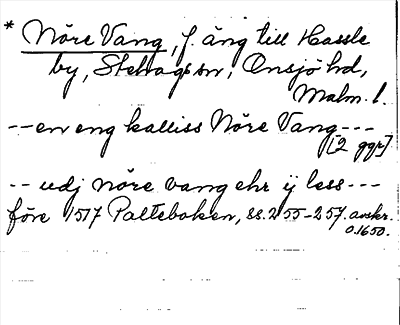 * Nöre Vang, f. äng till Hassle
by, Stehags sn, Onsjö hd,
Malm. l.
-- en eng kalliss Nöre Vang ---
[2 ggr]
-- udj nöre vang ehr ÿ less ---
före 1517 Palteboken, ss. 255-257. avskr.
o. 1650.